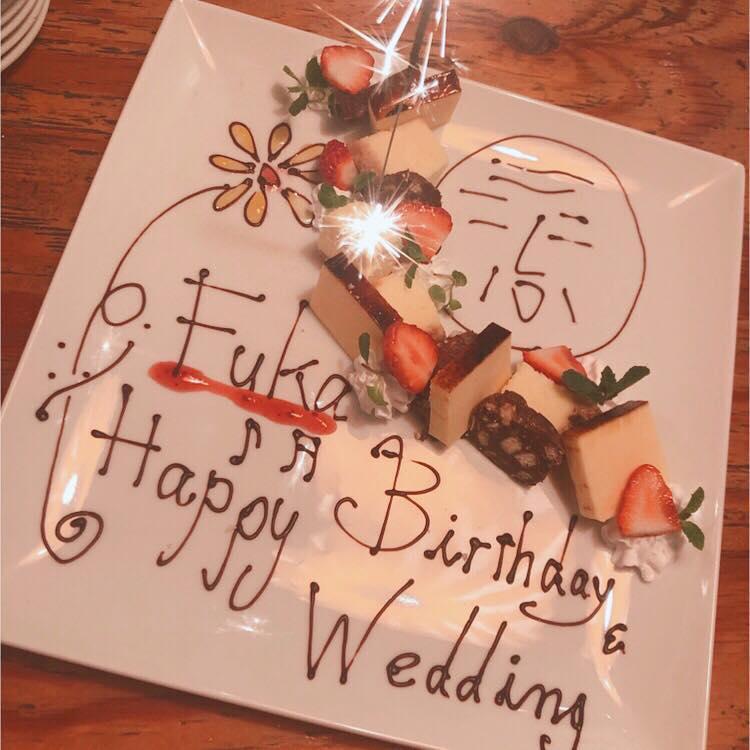 Fuka
Happy Birthday &
Wedding